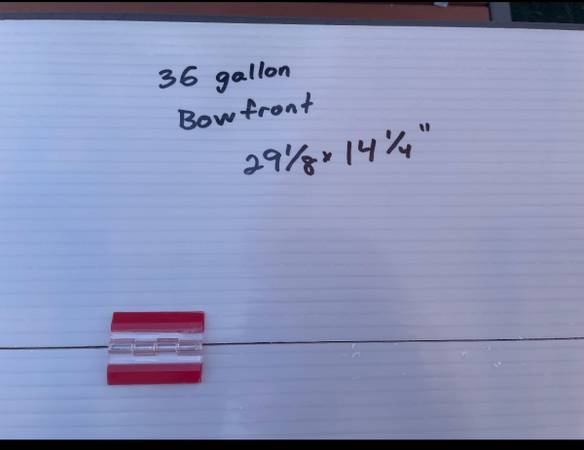 36 gallon
Bowfront
29 1/8 x 14 1/4"